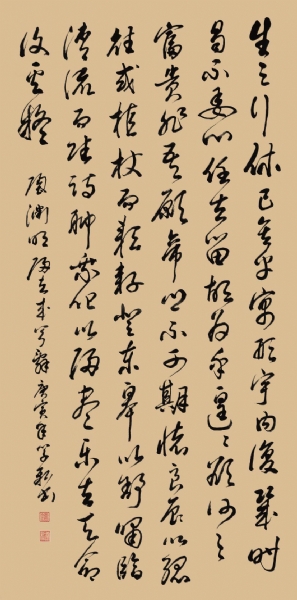 生之行休已矣乎寓形宇内復幾時
曷不委心任去留胡為乎遑〻欲何之
富貴非吾願帝鄉不可期懷良辰以孤
往或植杖而耘耔登東皋以舒嘯臨
清流而賦詩聊乘化以歸盡樂夫天命
復奚疑
陶淵明歸去來兮辭庚寅年書